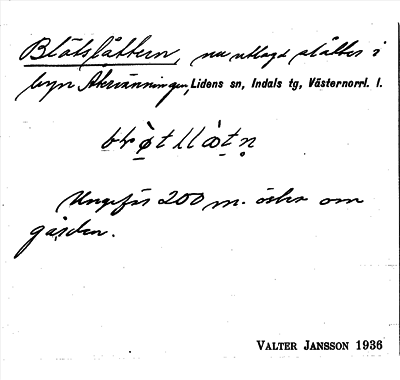 Blötslåttern, nu utlagd slåtter i
byn Åkeränningen, Lidens sn, Indals tg, Västernorrl. l.
Ungefär 200 m. öster om
gården.
VALTER JANSSON 1936